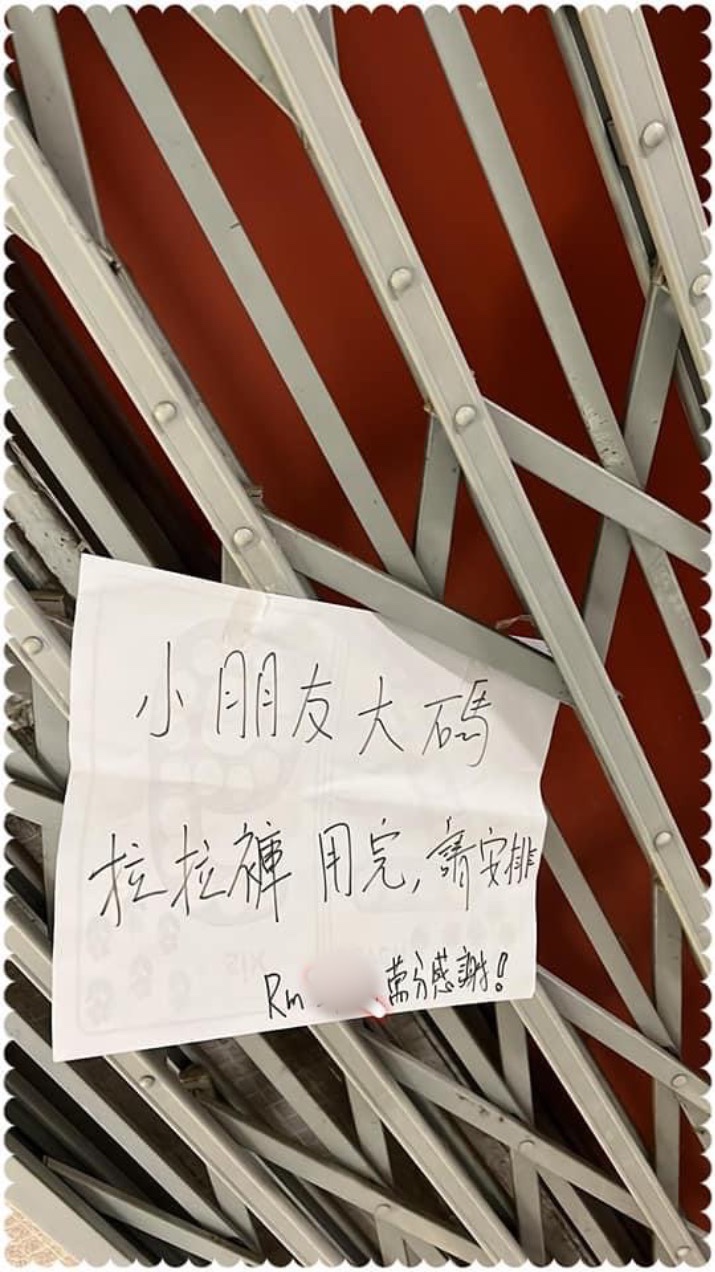 小朋友大碼
拉拉褲 用完,請安排
Rm 萬分感謝!